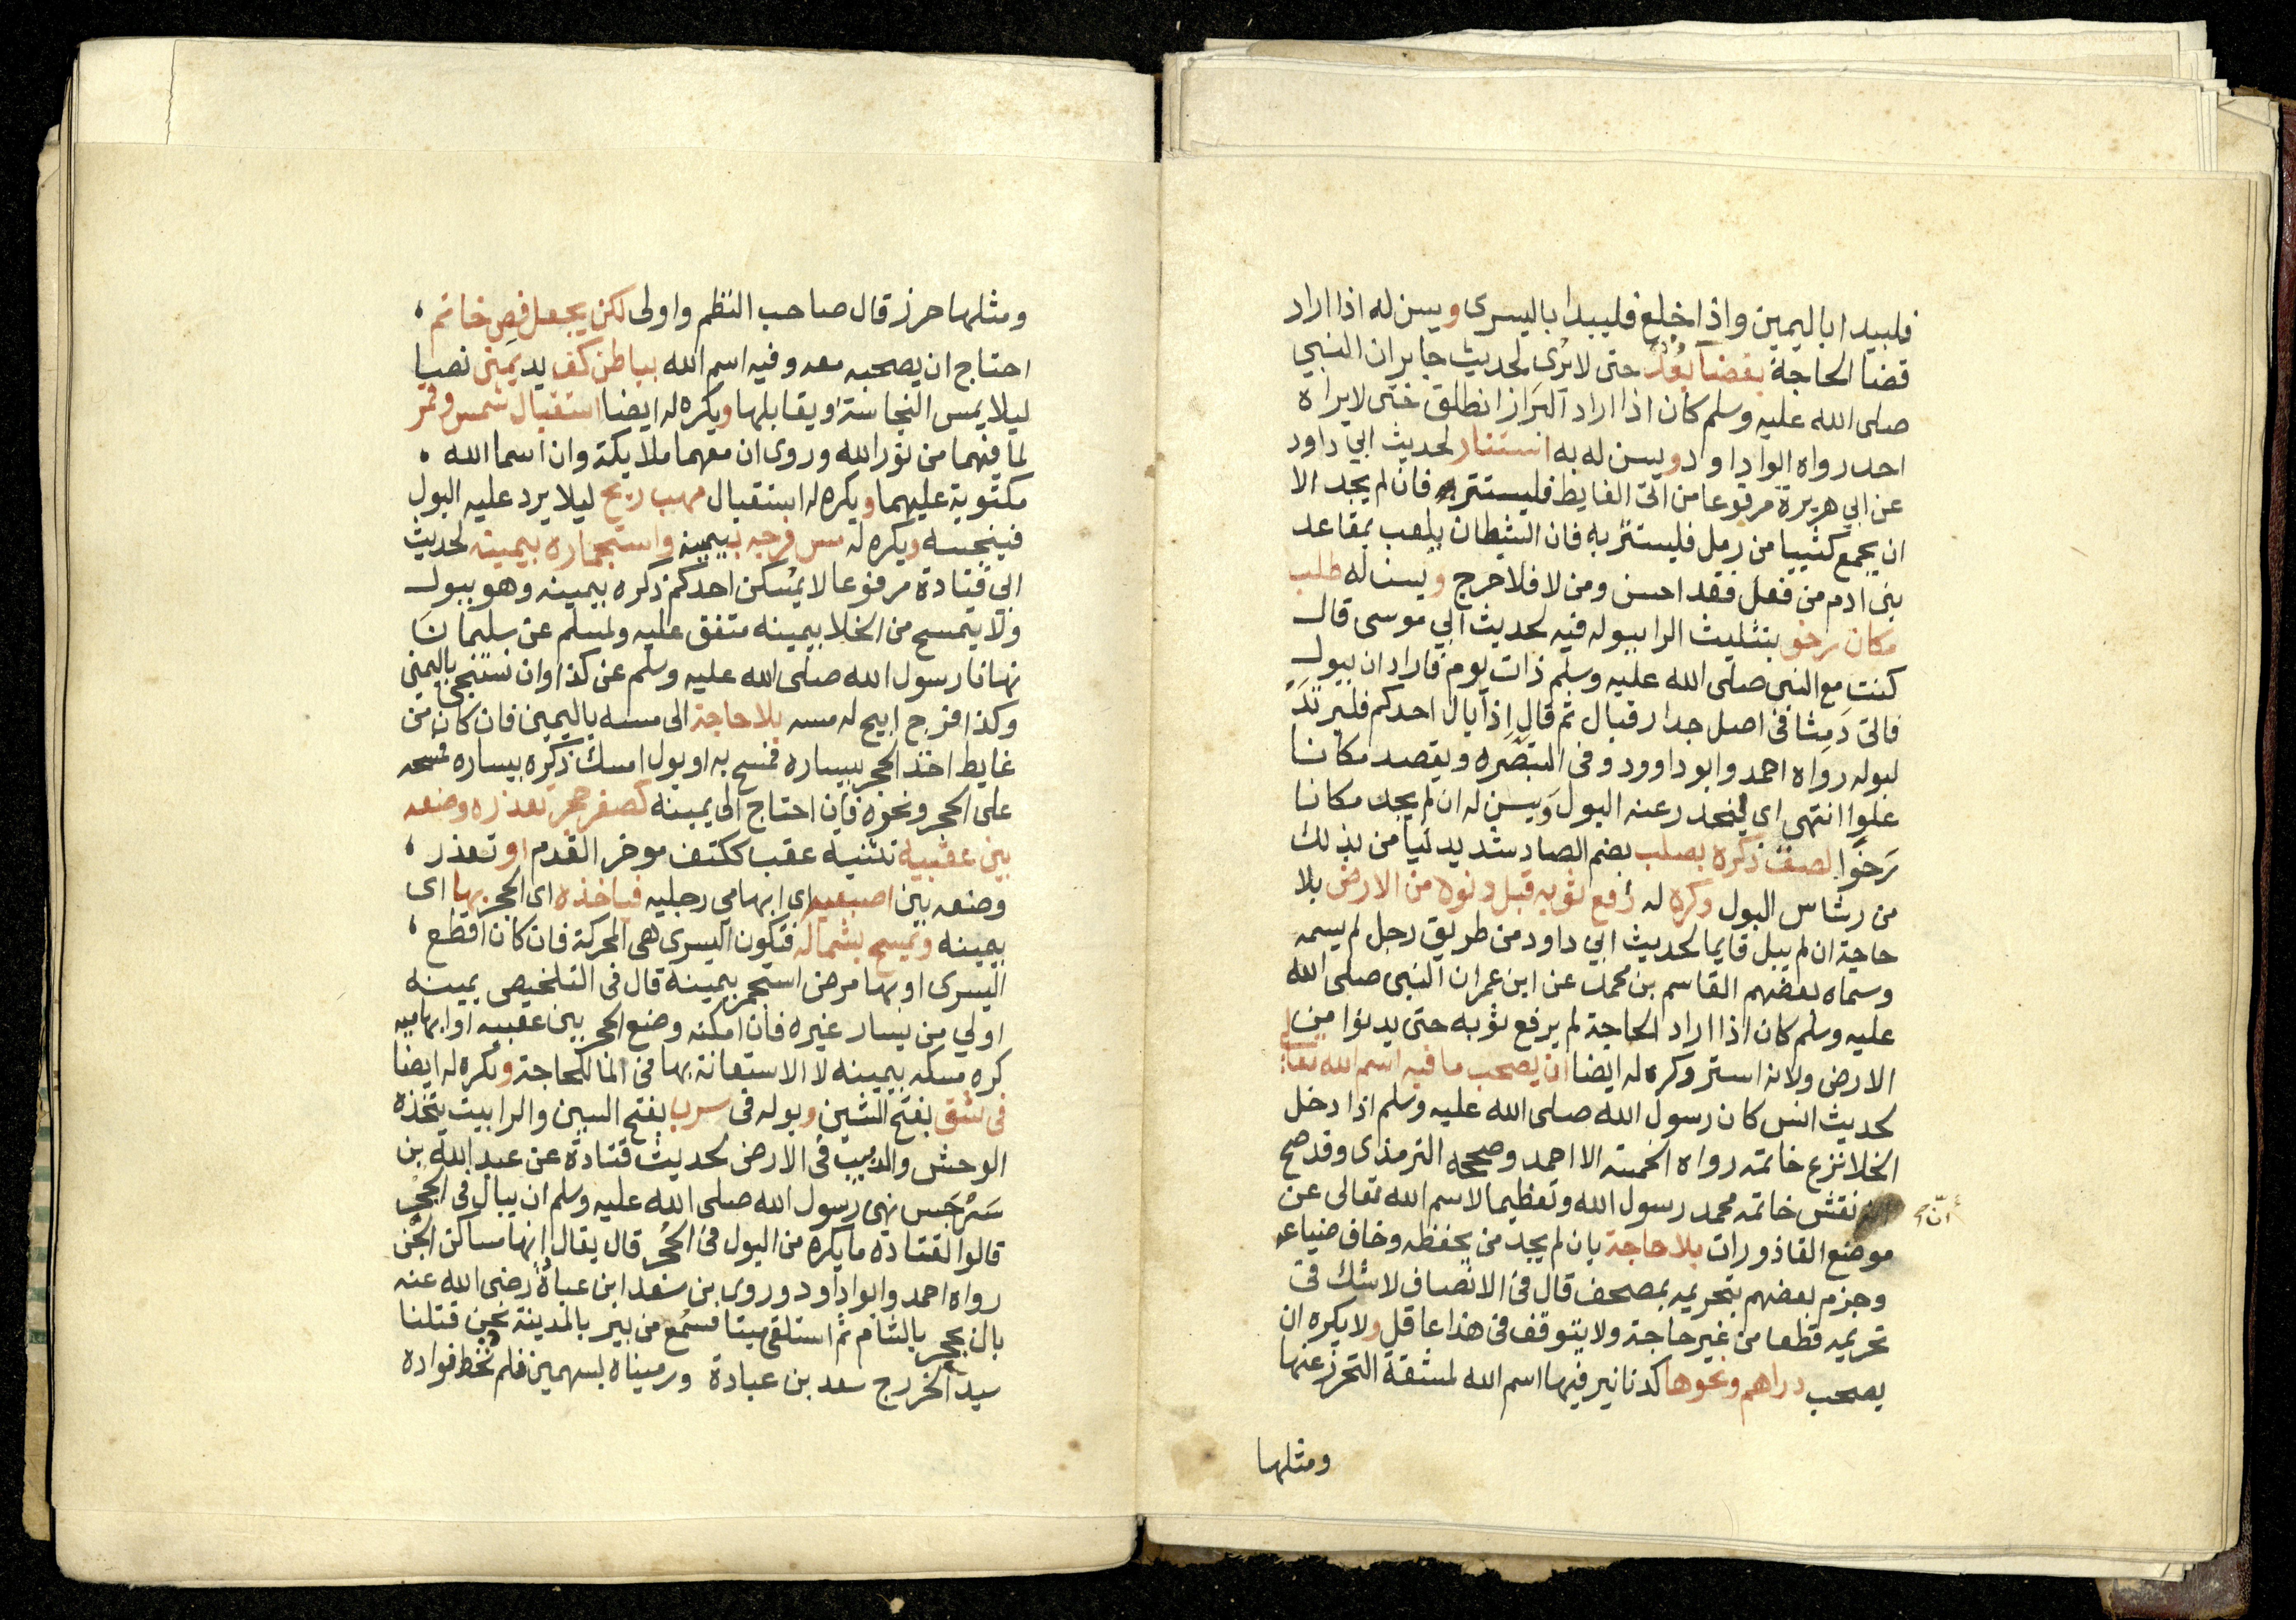 فليبدا باليمين واذا خلع فليبدا باليسرى ويسن له اذا اراد
قضا الحاجة بفضا بُعْدٌ حتى لا يرى لحديث جابر ان النبي
صلى الله عليه وسلم كان اذا اراد البَراز انطلق حتى لا يراه
احد رواه ابوا داود ويسن له به استتار لحديث ابي داود
عن ابي هريرة مرفوعا من اتى الغايط فليستتر فان لم يجد الا
ان يجمع كثيبا من رمل فليستتر به فان الشيطان يلعب بمقاعد
بني ادم من فعل فقد احسن ومن لا فلا حرج ويسن له طلب
مكان رخو بتثليث الرا لبوله فيه لحديث ابي موسى قال
كنت مع النبي صلى الله عليه وسلم ذات يوم فاراد ان يبول
فاتى دَمِثا في اصل جدار فبال ثم قال اذا بال احدكم فليرتد
لبوله رواه احمد وابو داوود وفي التبصره ويقصد مكانا
علوا انتهى اي لينحدر عنه البول ويسن له ان لم يجد مكانا
رَخوا لصق ذكره بصلب بضم الصاد شديد ليامن بذلك
من رشاس البول وكره له رفع ثوبه قبل دنوه من الارض بلا
حاجة ان لم يبل قايما لحديث ابي داود من طريق رجل لم يسمه
وسماه بعضهم القاسم بن محمد عن ابن عمر ان النبي صلى الله
عليه وسلم كان اذا اراد الحاجة لم يرفع ثوبه حتى يدنوا من
الارض ولانه استر وكره له ايضا ان يصحب ما فيه اسم الله تعالى
لحديث انس كان رسول الله صلى الله عليه وسلم اذا دخل
الخلا نزع خاتمه رواه الخمسة الا احمد وصححه الترمذي وقد صح
انّ نقش خاتمه محمد رسول الله وتعظيما لاسم الله تعالى عن
موضع القاذورات بلا حاجة بان لم يجد من يحفظه وخاف ضياعه
وجزم بعضهم بتحريمه بمصحف قال في الانصاف لا شك في
تحريمه قطعا من غير حاجة ولا يتوقف في هذا عاقل ولا يكره ان
يصحب دراهم ونحوها كدنانير فيها اسم الله لمشقة التحرز عنها
ومثلها
ومثلها حرز قال صاحب النظم واولى لكن يجعل فص خاتم
احتاج ان يصحبه معه وفيه اسم الله بباطن كف يد يمنى نصا
ليلا يمس النجاسة او يقابلها ويكره له ايضا استقبال شمس وقمر
لما فيهما من نور الله وروى ان معهما ملايكة وان اسما الله
مكتوبة عليهما ويكره له استقبال مهب ريح ليلا يرد عليه البول
فينجسه ويكره له مس فرجه بيمينه واستجماره بيمينه لحديث
ابي قتادة مرفوعا لا يمسكن احدكم ذكره بيمينه وهو يبول
ولا يتمسح من الخلا بيمينه متفق عليه ولمسلم عن سليمان
نهانا رسول الله صلى الله عليه وسلم عن كذا وان نستنجي باليمنى
وكذا فرج ابيح له مسه بلا حاجة الى مسه باليمين فان كان من
غايط اخذ الحجر بيساره فمسح به او بول امسك ذكره بيساره فمسحه
على الحجر ونحوه فان احتاج الى يمينه كصغر حجر تعذر وضعه
بين عقبيه تثنية عقب ككتف موخر القدم او تعذر
وضعه بين اصبعيه اي ابهامي رجليه فياخذه اي الحجر بها اي
بيمينه ويمسح بشماله فتكون اليسرى هي المحركة فان كان اقطع
اليسرى او بها مرض استجمر بيمينه قال في التلخيص يمينه
اولي من يسار غيره فان امكنه وضع الحجر بين عقبيه او ابهاميه
كره مسكه بيمينه لا الاستعانة بها في الما لحاجة ويكره له ايضا
في شق بفتح الشين وبوله في سرب بفتح السين والرا بيت يتخذه
الوحش والدبيب في الارض لحديث قتادة عن عبد الله بن
سَرْجَس نهى رسول الله صلى الله عليه وسلم ان يبال في الجحر
قالوا لقتادة ما يكره من البول في الجحر قال يقال انها مساكن الجن
رواه احمد وابوا داود وروى بن سعد ابن عبادة رضي الله عنه
بال بحجر بالشام ثم استلقى ميتا فسُمع من بير بالمدينة نحن قتلنا
سيد الخزرج سعد بن عبادة ورميناه بسهمين فلم نُخط فواده